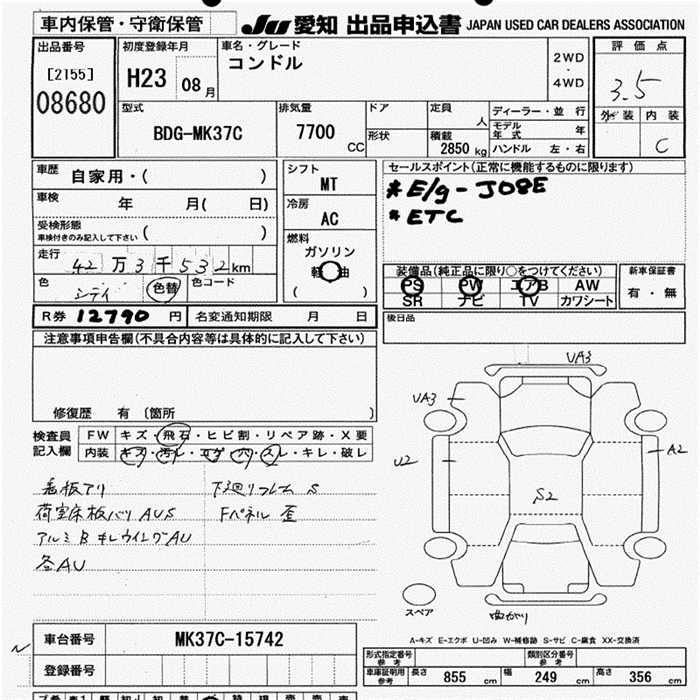 車内保管・守衛保管
JU 愛知 出品申込書 JAPAN USED CAR DEALERS ASSOCIATION
出品番号 [2155] 08680
初度登録年月 H23 08月
車名・グレード コンドル
2WD・4WD
評価点 3.5
外装 内装 C
型式 BDG-MK37C
排気量 7700 CC
ドア 形状
定員 人
積載 2850 kg
ディーラー・並行
モデル年式 年
ハンドル 左・右
車歴 自家用・( )
車検 年 月( 日)
受検形態 車検付きのみ記入して下さい ( )
走行 42万3千532km
色 シティ 色替 色コード
シフト MT
冷房 AC
燃料 ガソリン 軽油 ( )
セールスポイント(正常に機能するものに限ります)
*E/g-J08E
*ETC
装備品(純正品に限り○をつけてください)
PS PW エアB AW
SR ナビ TV カワシート
新車保証書 有・無
R券 12790 円 名変通知期限 月 日
後日品
注意事項申告欄(不具合内容等は具体的に記入して下さい)
修復歴 有 (箇所 )
検査員記入欄
FW キズ・飛石・ヒビ割・リペア跡・X要
内装 キズ・汚レ・コゲ・穴・スレ・キレ・破レ
看板アリ 下廻りフレーム S
荷室床板バリ AUS Fパネル 歪
アルミBキレウイングAU
各AU
UA3
UA3
U2
A2
S2
スペア
曲がり
A-キズ E-エクボ U-凹み W-補修跡 S-サビ C-腐食 XX-交換済
車台番号 MK37C-15742
登録番号
型式指定番号 参考 類別区分番号 参考
車庫証明用 参考 長さ 855 cm 幅 249 cm 高さ 356 cm